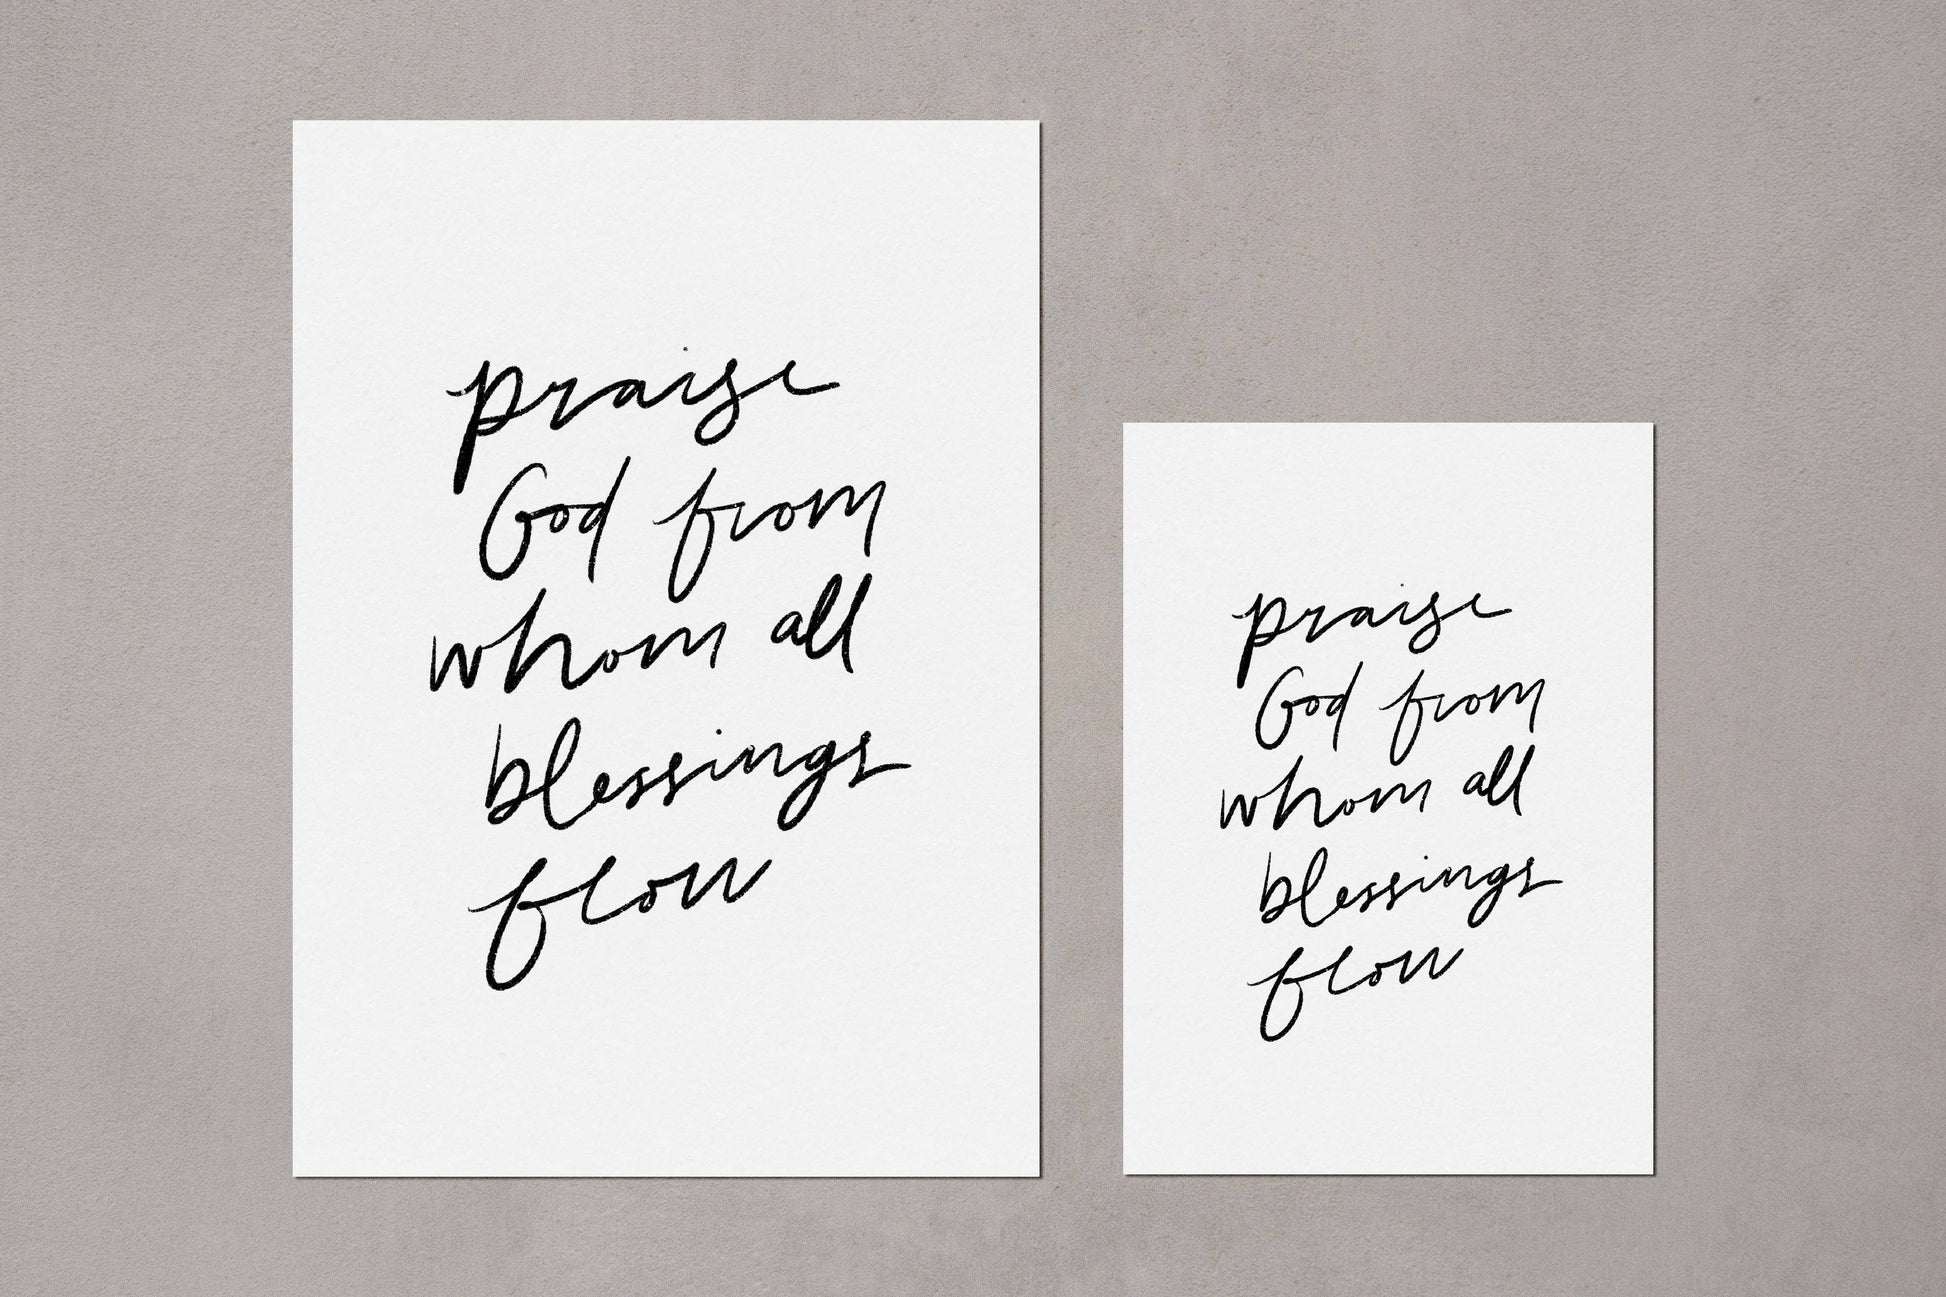 praise
God from
whom all
blessings
flow
praise
God from
whom all
blessings
flow